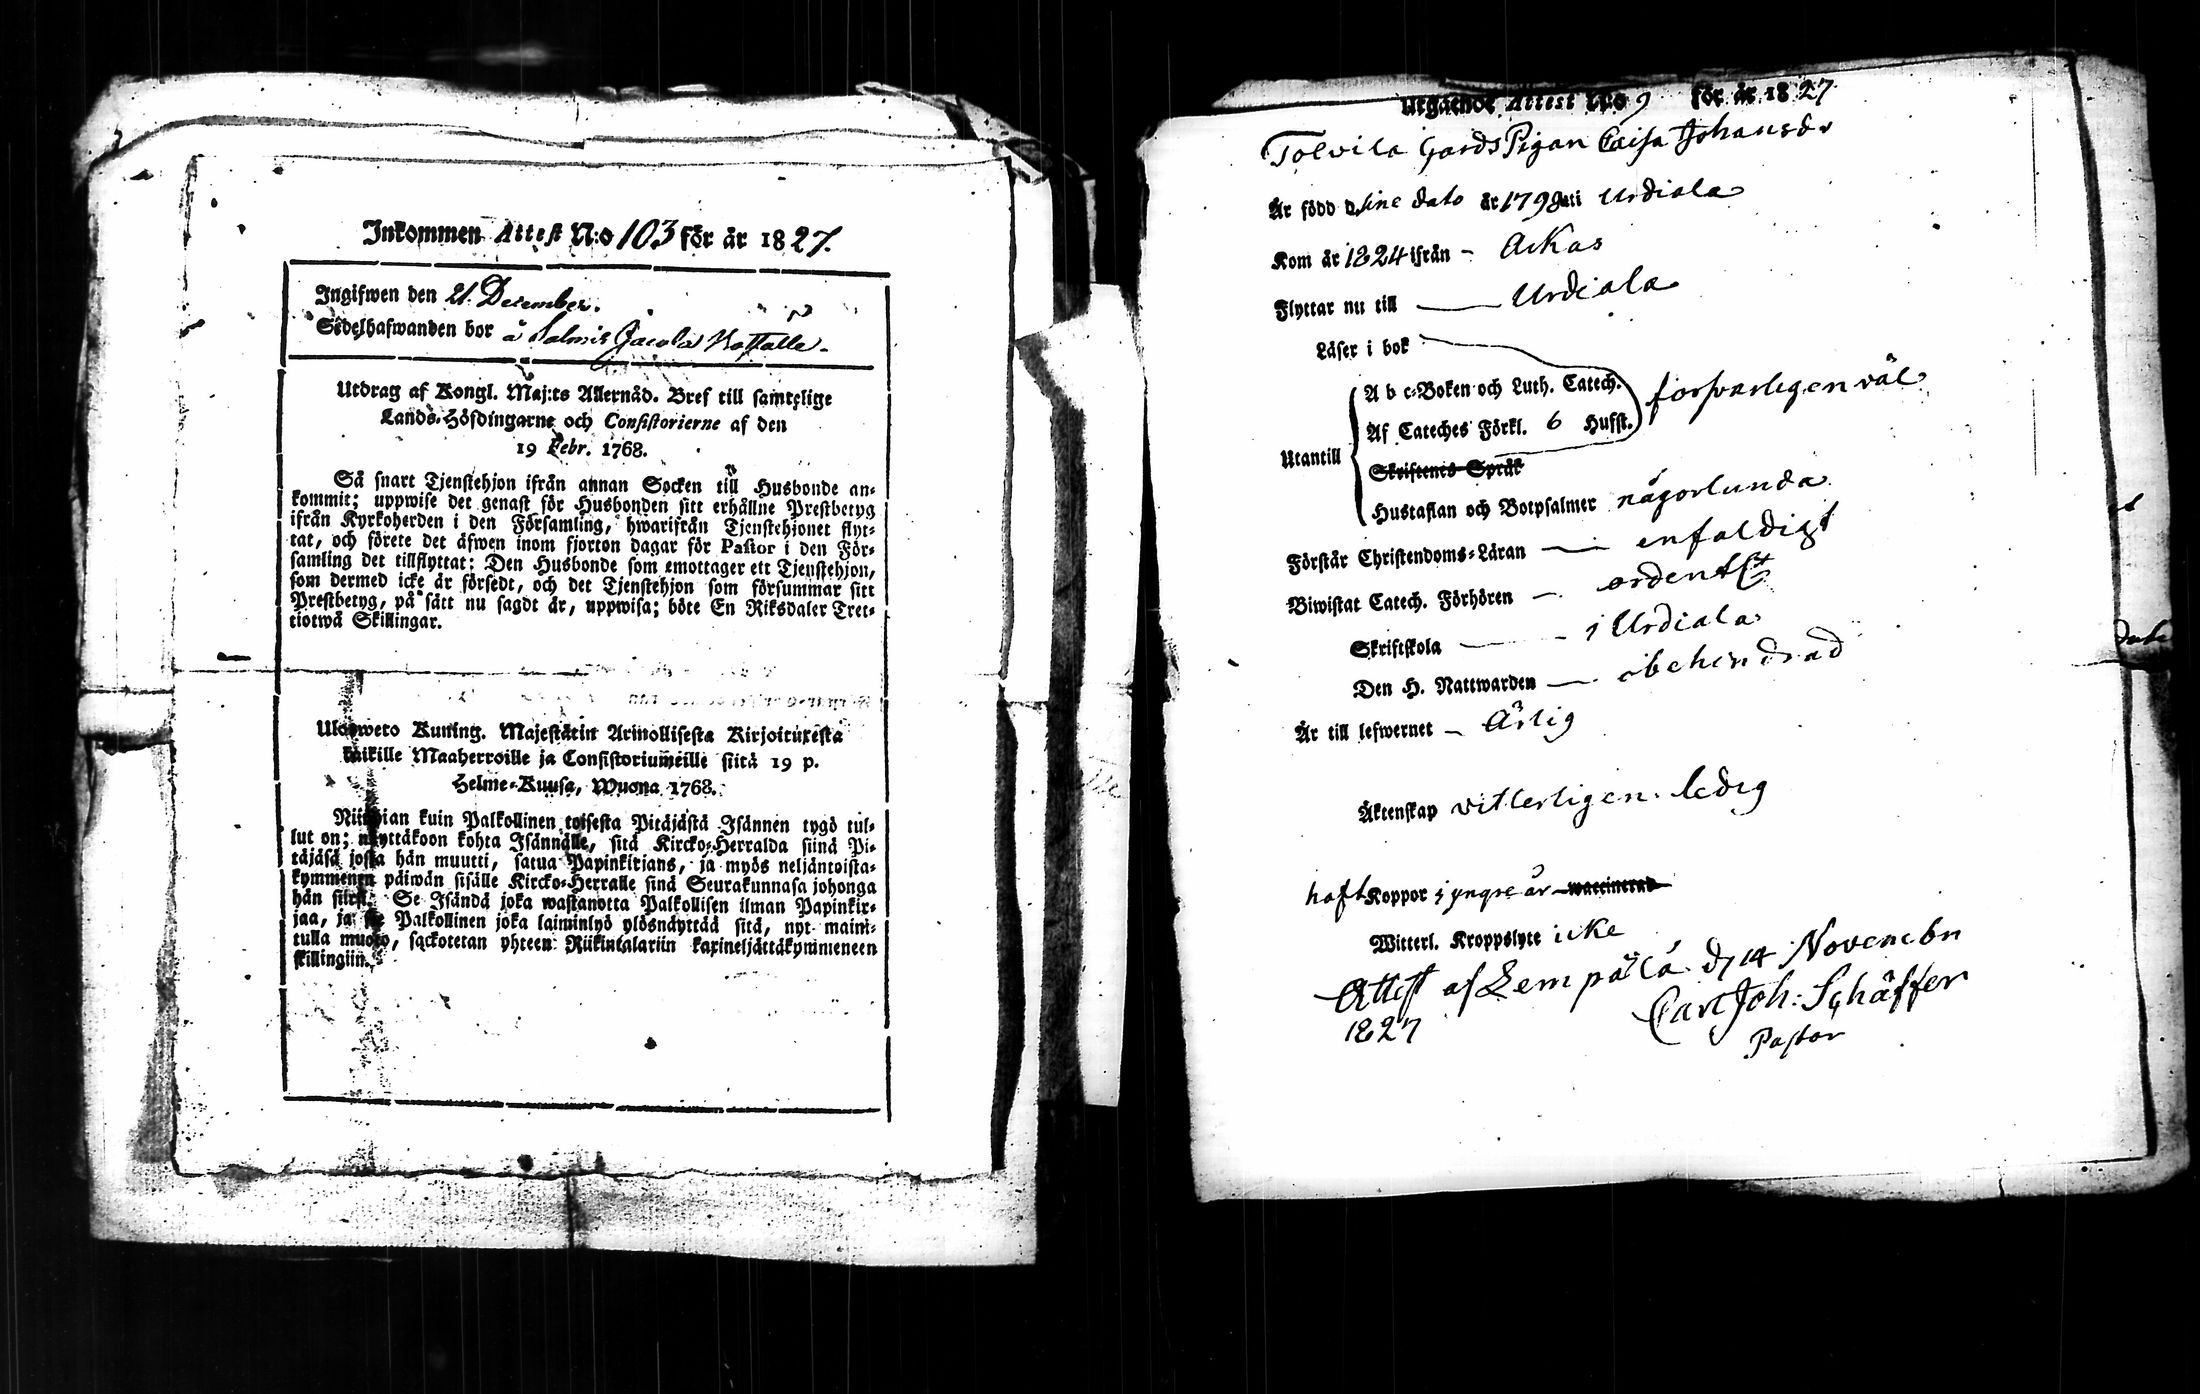 Inkommen Attest N:o 103 för år 1827.
Ingifwen den 21 December.
Sedelhafwanden bor å Salmis Jacola
Utdrag af Kongl. Maj:ts Allernåd. Bref till samtelige
Lands-Höfdingarne och Consistorierne af den
19 Febr. 1768.
Så snart Tjenstehjon ifrån annan Socken till Husbonde an-
kommit; uppwise det genast för Husbonden sitt erhållne Prestbetyg
ifrån Kyrkoherden i den Församling, hwarifrån Tjenstehjonet flyt-
tat, och förete det äfwen inom fjorton dagar för Pastor i den För-
samling det tillflyttat: Den Husbonde som emottager ett Tjenstehjon,
som dermed icke är försedt, och det Tjenstehjon som försummar sitt
Prestbetyg, på sätt nu sagdt är, uppwisa; böte En Riksdaler Tret-
tiotwå Skillingar.
Ulosweto Kuning. Majestätin Armollisesta Kirjoituxesta
kaikille Maaherroille ja Consistoriumeille siitä 19 p.
Helme-Kuusa, Wuona 1768.
Niinpian kuin Palkollinen toisesta Pitäjästä Isännen tygö tul-
lut on; näyttäkoon kohta Isännälle, sitä Kircko-Herralda siinä Pi-
täjäsä josta hän muutti, saatua Papinkirjans, ja myös neljäntoista-
kymmenen päiwän sisälle Kircko-Herralle sinä Seurakunnasa johonga
hän siirsi. Se Isändä joka wastanotta Palkollisen ilman Papinkir-
jaa, ja se Palkollinen joka laiminlyö ylösnäyttää sitä, nyt maini-
tulla muoto, sackotetan yhteen Riikintalariin kaxineljättäkymmeneen
skillingiin.
Utgående Attest N:o 9 för år 1827
Tolvila Gards Pigan Caisa Johansdr
Är född d. sine dato år 1798 uti Urdiala
Kom år 1824 ifrån - Ackas
Flyttar nu till Urdiala
Läser i bok
A b c-Boken och Luth. Catech.
försvarligen väl
Af Cateches Förkl. 6 Hufst.
Utantill
Skriftenes Språk
Hustaflan och Botpsalmer någorlunda
Förstår Christendoms-Läran enfaldigt
Biwistat Catech. Förhören - ordentlt
Skriftskola i Urdiala
Den H. Nattwarden obehindrad
Är till lefwernet - Ärlig
Äktenskap vitterligen ledig
haft Koppor i yngre år waccinerad
Witterl. Kroppslyte icke
Attest af Lempälä d. 14 Novembr
1827
Carl Joh: Schäffer
Pastor